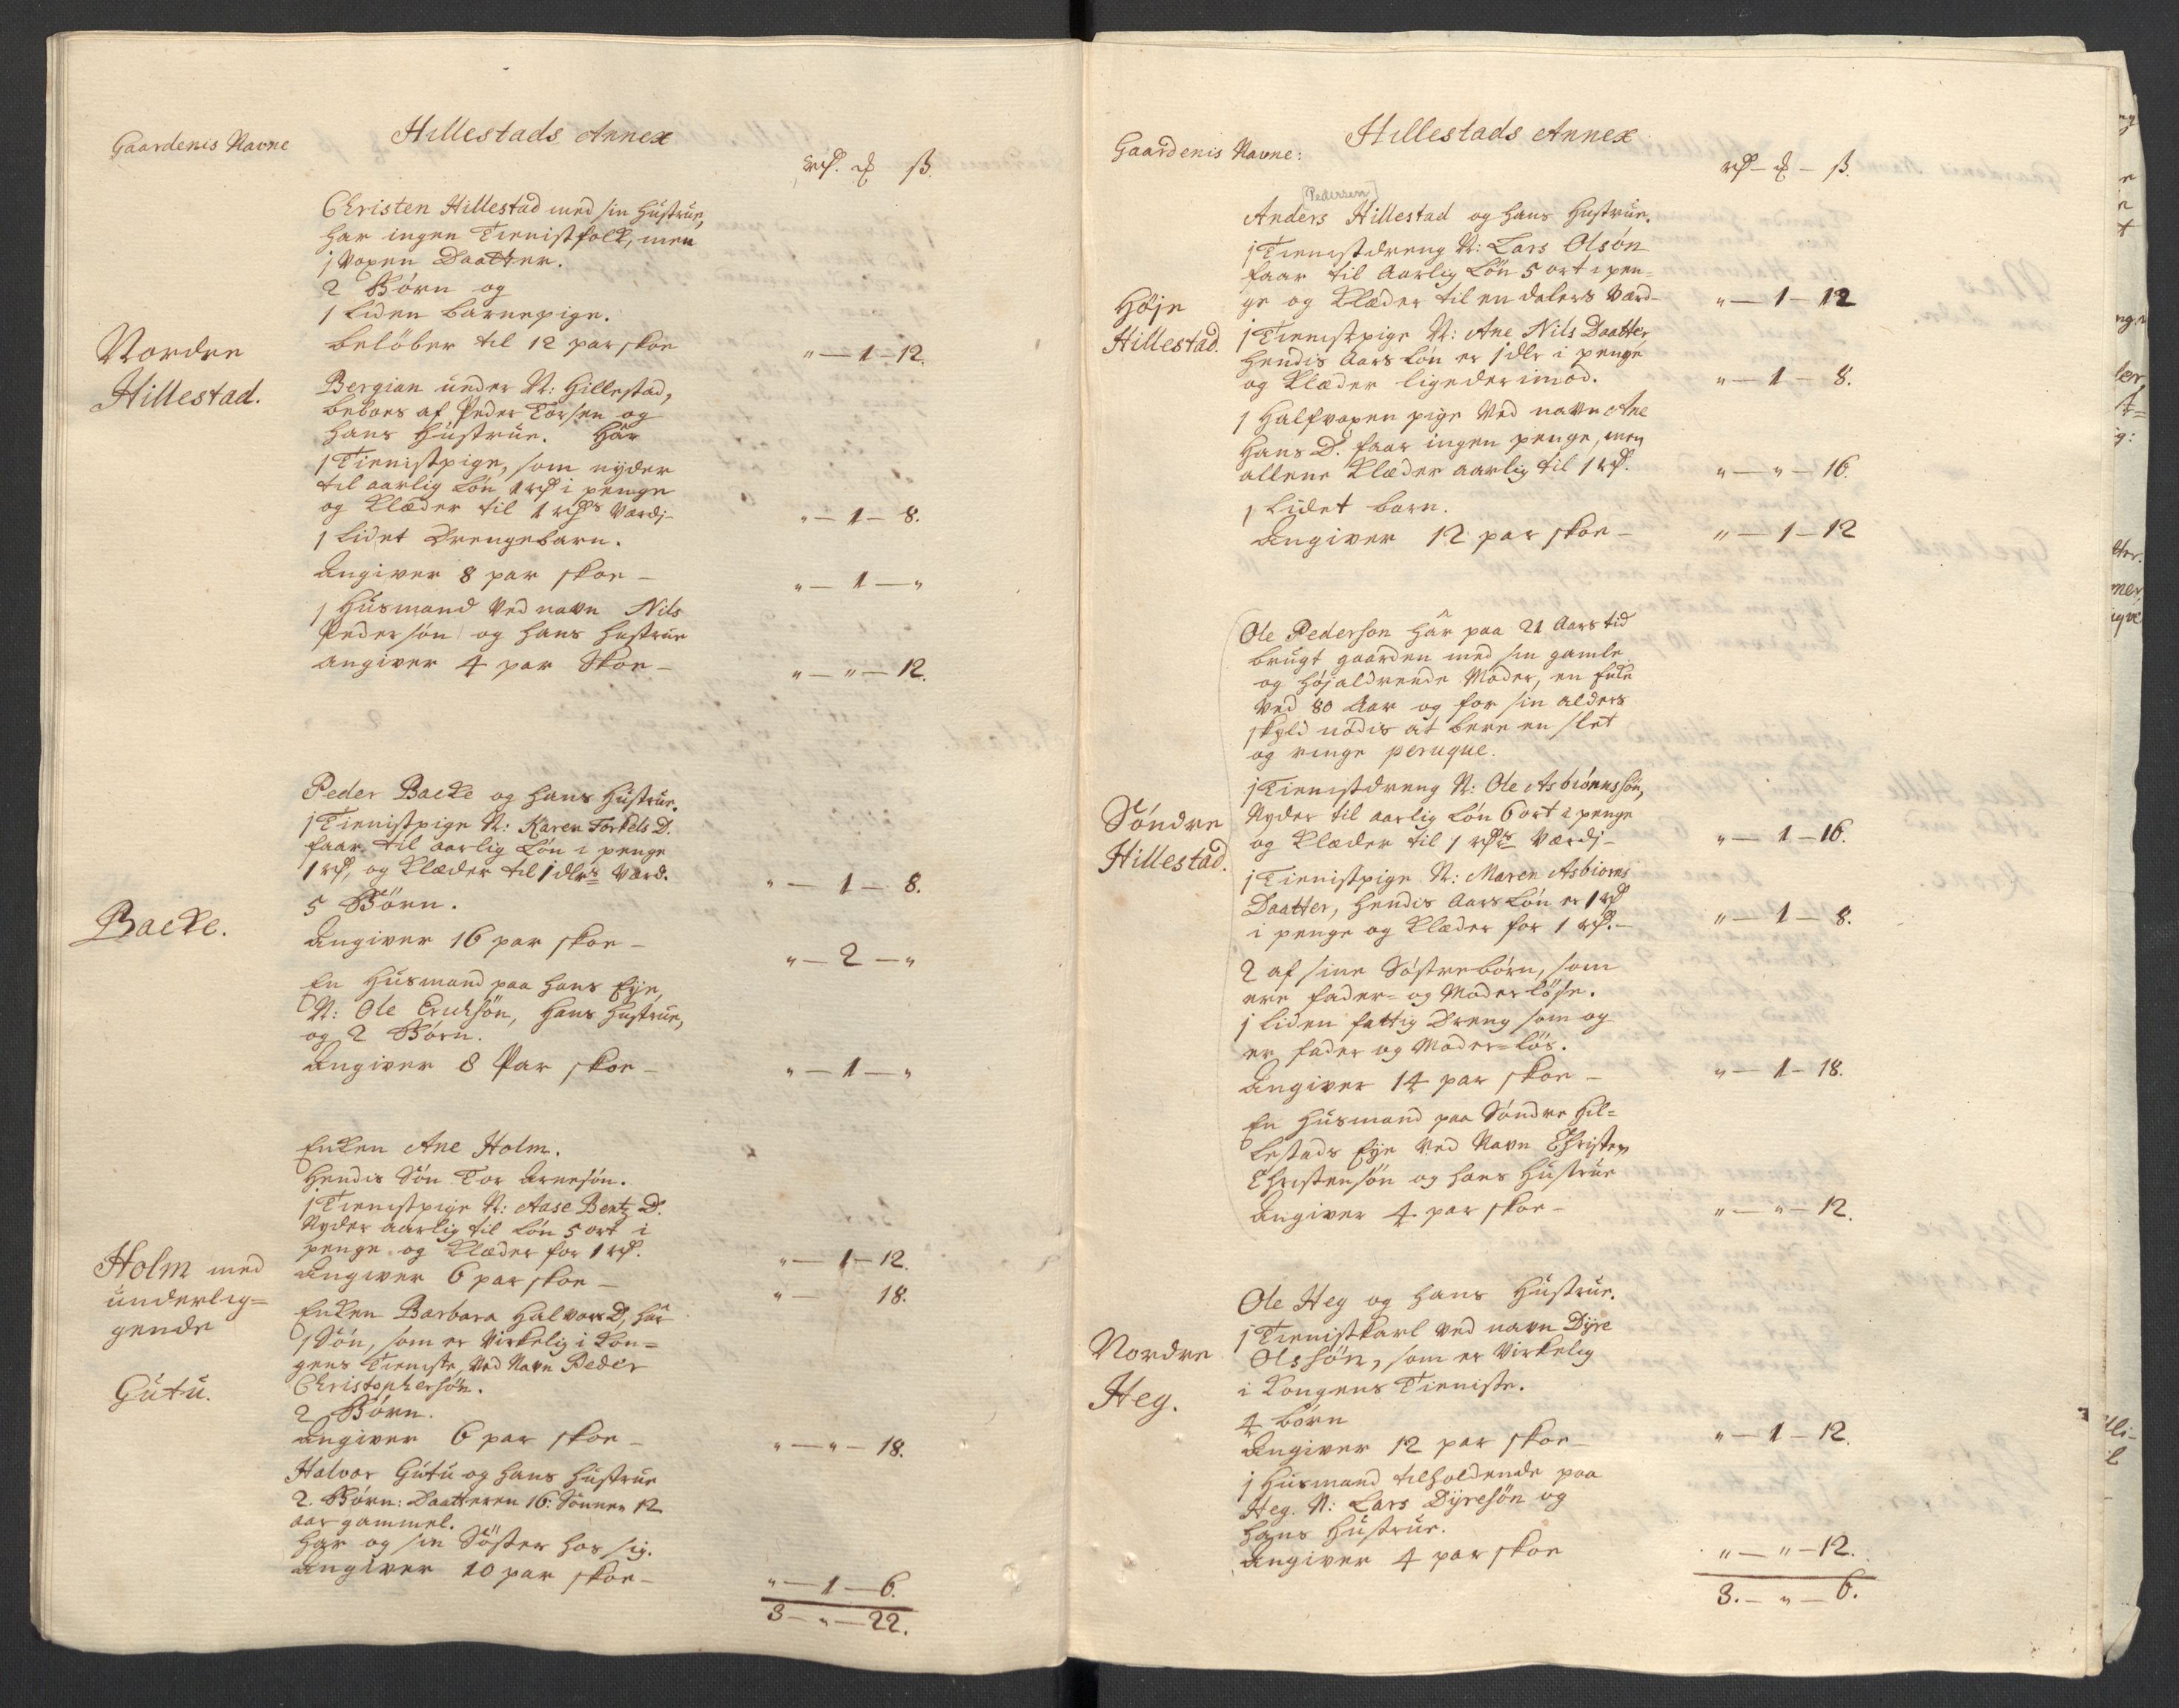 Gaardenis Navne
Hillestads Annex
rd. ₰ ß.
Christen Hillestad med sin Hustrue,
har ingen Tienistfolk, men
1 voxen Daatter.
2 Börn og
1 liden barnepige.
belöber til 12 par skoe
" — 1 — 12.
Nordre
Hillestad.
Bergian under N: Hillestad,
beboes af Peder Torsen og
hans Hustrue. Har
1 Tienistpige, som nyder
til aarlig Lön 1 rd i penge
og Klæder til 1 rds værdj —
" — 1 — 8.
1 lidet Drengebarn.
Angiver 8 par skoe —
" — 1 — "
1 Huusmand ved navn Nils
Pedersön og hans hustrue
angiver 4 par Skoe —
" — " — 12.
Backe.
Peder Backe og hans Hustrue.
1 Tienistpige N: Karen Torkels D.
faar til aarlig Lön i penge
1 rd, og Klæder til 1 dlrs værd.
" — 1 — 8.
5 Börn.
Angiver 16 par skoe —
" — 2 — "
En Huusmand paa hans Eye,
N: Ole Erichsön, hans hustrue,
og 2 Börn.
Angiver 8 Par skoe —
" — 1 — "
Holm med
underlig=
gende
Gutu.
Enken Ane Holm.
Hendis Sön Tor Arnesön.
1 Tienistpige N: Aase Bentz D.
Nyder aarlig til Lön 5 ort i
penge og Klæder for 1 rd.
" — 1 — 12.
Angiver 6 par skoe —
" — 18.
Enken Barbara Halvors D, har
1 Sön, som er virkelig i Kon=
gens Tieniste, ved Navn Peder
Christophersön.
2 Börn.
Angiver 6 par skoe —
" — " — 18.
Halvor Gutu og hans hustrue
2. Börn: Daatteren 16. Sönnen 12
aar gammel.
har og sin Söster hos sig.
Angiver 10 par skoe —
" — 1 — 6.
3 — " — 22.
Gaardenis Navne:
Hillestads Annex
rd — ₰ — ß.
[Pedersen]
Anders Hillestad og hans hustrue.
1 Tienistdreng N: Lars Olsön
faar til Aarlig Lön 5 ort i pen=
ge og Klæder til en dalers værd —
" — 1 — 12
Höje
Hillestad.
1 Tienistpige N: Ane Nils Daatter,
hendis Aars Lön er 1 dlr i penge
og Klæder ligederimod.
" — 1 — 8.
1 Halfvoxen pige ved navn Ane
Hans D. faar ingen penge, men
allene Klæder aarlig til 1 rd.
" — " — 16.
1 lidet barn.
Angiver 12 par skoe —
" — 1 — 12
Söndre
Hillestad.
Ole Pederson har paa 21 Aars tid
brugt gaarden med sin gamle
og höjaldrende Moder, en Enke
ved 80 Aar og for sin alders
skyld nödis at bere en slet
og ringe peruque.
1 Tienistdreng N: Ole Asbiörnssön,
Nyder til aarlig Lön 6 ort i penge
og Klæder til 1 rds værdj —
" — 1 — 16.
1 Tienistpige N: Maren Asbiorns
Daatter, hendis Aars Lön er 1 rd
i penge og Klæder for 1 rd. —
" — 1 — 8.
2 af sine Söstrebörn, som
ere fader= og Moderlöse.
1 liden fattig Dreng som og
er fader og Moder=lös.
Angiver 14 par skoe —
" — 1 — 18.
En Huusmand paa Söndre Hil=
lestads Eye ved Navn Christen
Christensön og hans Hustrue
Angiver 4 par skoe —
" — " — 12.
Nordre
Heg.
Ole Heg og hans Hustrue.
1 Tienistkarl ved navn Dyre
Olssön, som er virkelig
i Kongens Tieniste.
4 börn
Angiver 12 par skoe —
" — 1 — 12.
1 Huusmand tilholdende paa
Heg. N: Lars Dyresön og
hans Hustrue.
Angiver 4 par skoe
" — " — 12.
3. — " — 6.